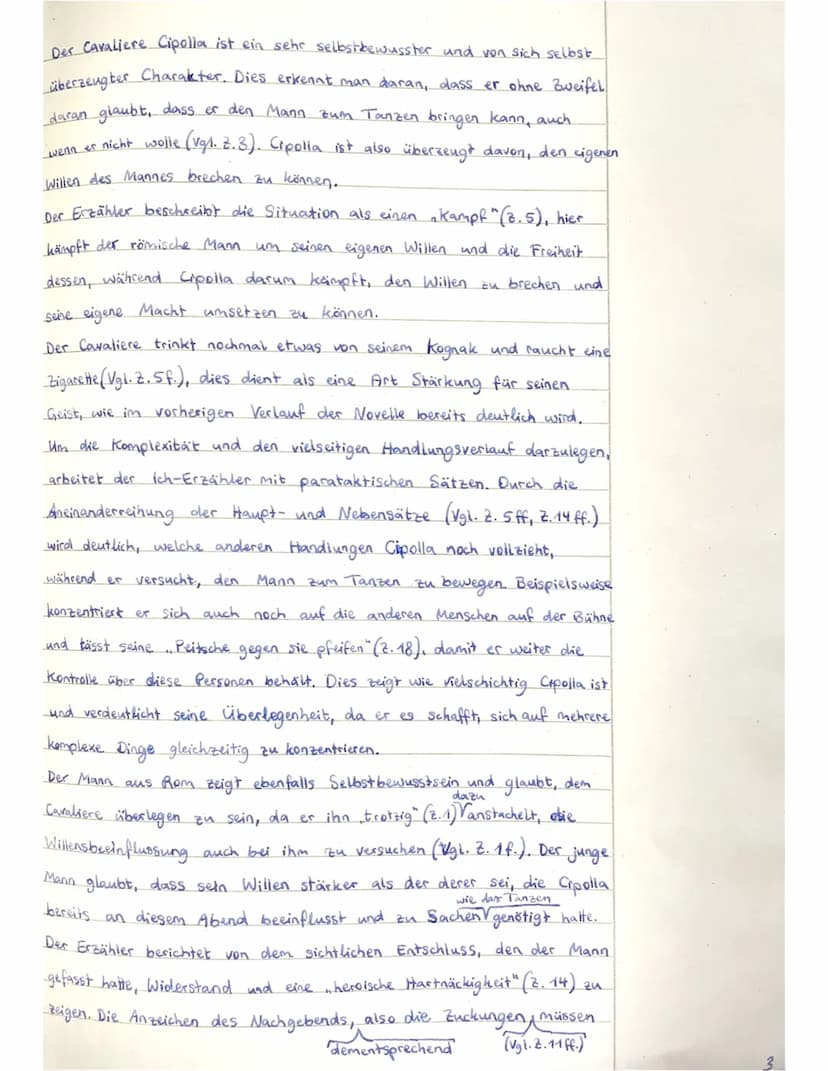 Der Cavaliere Cipolla ist ein sehr selbstbewusster und von sich selbst
überzeugter Charakter. Dies erkennt man daran, dass er ohne Zweifel
daran glaubt, dass er den Mann zum Tanzen bringen kann, auch
wenn er nicht wolle (Vgl. Z.3). Cipolla ist also überzeugt davon, den eigenen
Willen des Mannes brechen zu können.
Der Erzähler beschreibt die Situation als einen „Kampf" (Z.5), hier
kämpft der römische Mann um seinen eigenen Willen und die Freiheit
dessen, während Cipolla darum kämpft, den Willen zu brechen und
seine eigene Macht umsetzen zu können.
Der Cavaliere trinkt nochmal etwas von seinem Kognak und raucht eine
Zigarette (Vgl. Z.5f.), dies dient als eine Art Stärkung für seinen
Geist, wie im vorherigen Verlauf der Novelle bereits deutlich wird.
Um die Komplexität und den vielseitigen Handlungsverlauf darzulegen,
arbeitet der Ich-Erzähler mit parataktischen Sätzen. Durch die
Aneinanderreihung der Haupt- und Nebensätze (Vgl. Z. 5ff, Z.14ff.)
wird deutlich, welche anderen Handlungen Cipolla noch vollzieht,
während er versucht, den Mann zum Tanzen zu bewegen. Beispielsweise
konzentriert er sich auch noch auf die anderen Menschen auf der Bühne
und lässt seine „Peitsche gegen sie pfeifen" (Z.18), damit er weiter die
Kontrolle über diese Personen behält. Dies zeigt wie vielschichtig Cipolla ist
und verdeutlicht seine Überlegenheit, da er es schafft, sich auf mehrere
komplexe Dinge gleichzeitig zu konzentrieren.
Der Mann aus Rom zeigt ebenfalls Selbstbewusstsein und glaubt, dem
dazu
Cavaliere überlegen zu sein, da er ihn „trotzig" (Z.1) anstachelt, die
Willensbeeinflussung auch bei ihm zu versuchen (Vgl. Z. 1f.). Der junge
Mann glaubt, dass sein Willen stärker als der derer sei, die Cipolla
wie das Tanzen
bereits an diesem Abend beeinflusst und zu Sachen genötigt hatte.
Der Erzähler berichtet von dem sichtlichen Entschluss, den der Mann
gefasst hatte, Widerstand und eine „heroische Hartnäckigkeit" (Z. 14) zu
zeigen. Die Anzeichen des Nachgebends, also die Zuckungen, müssen
dementsprechend (Vgl. Z. 11ff.)
3